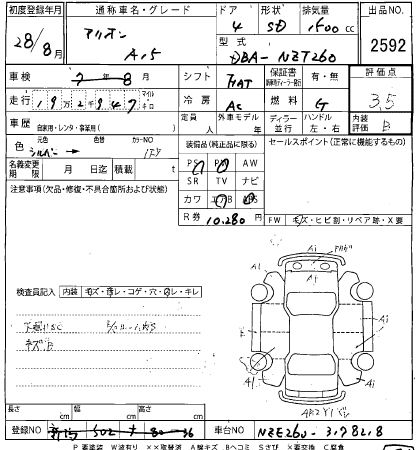 初度登録年月 通称車名・グレード ドア 形状 排気量 出品NO
28/8月 アリオン A15 4 SD 1500cc
型式 DBA-NZT260 2592
車検 7年8月 シフト FAT 保証書 有・無 評価点
走行 19万2千947 マイル キロ 冷房 AC 燃料 G 3.5
車歴 自家用・レンタ・事業用( ) 定員 人 外車モデル 年 ディーラー 並行 ハンドル 左・右 内装評価 B
色 元色 シルバー → 色替 カラーNO 1F7 装備品(純正品に限る) セールスポイント(正常に機能するもの)
PS PW AW
名義変更期限 月 日迄 積載 t SR TV ナビ
注意事項(欠品・修復・不具合箇所および状態) カワ エアB ABS
R券 10,280円 FW キズ・ヒビ割・リペア跡・X要
検査員記入 内装 キズ・汚レ・コゲ・穴・切レ・キレ
キズB
A1
A1
A1
A1
A1
長さ cm 幅 cm 高さ cm
登録NO 新潟 502 80-36 車台NO NZE260-3178218
P 要塗装 W波有り ××取替済 A線キズ Bヘコミ Sさび X要交換 C腐食